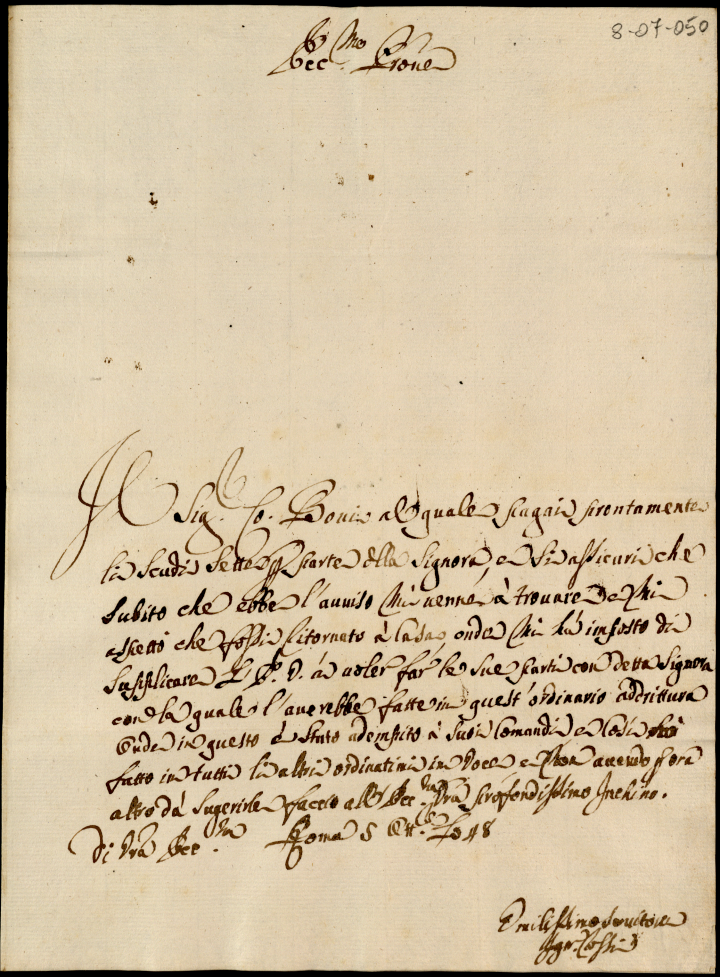 8-07-050
Ecc.mo Prone
Il Sig. Co. Bovi al quale pagai prontamente
li scudi sette p parte della Signora, e si assicuri che
subito che ebbe l'avviso mi venne à trovare e mi
aspettò che fossi ritornato à Casa, onde mi hà imposto di
supplicare V. à voler far le sue parti con detta Signora
con la quale l'averebbe fatte in quest'ordinario addrittura
Onde in questo è stato adempito à suoi Comandi e Così
fatto in tutti li altri ordinatimi in voce e non avendo p ora
altro dà sugerirle faccio all' Ecc.za Vra profondissimo Inchino.
Di Vra Ecc.za Roma 5 Ott.
Umilissimo Servitore